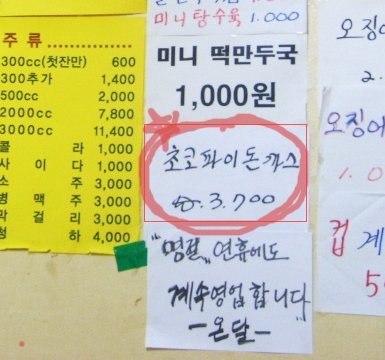 주 류
300cc(첫잔만) 600
300추가 1,400
500cc 2,000
2000cc 7,800
3000cc 11,400
콜 라 1,000
사 이 다 1,000
소 주 3,000
병 맥 주 3,000
막 걸 리 3,000
청 하 4,000
미니탕수육 1.000
미니 떡만두국
1,000원
초코파이돈까스
3.700
"명절" 연휴에도
계속영업합니다
-온달-
오징어
오징어
1.0
컵 계
5